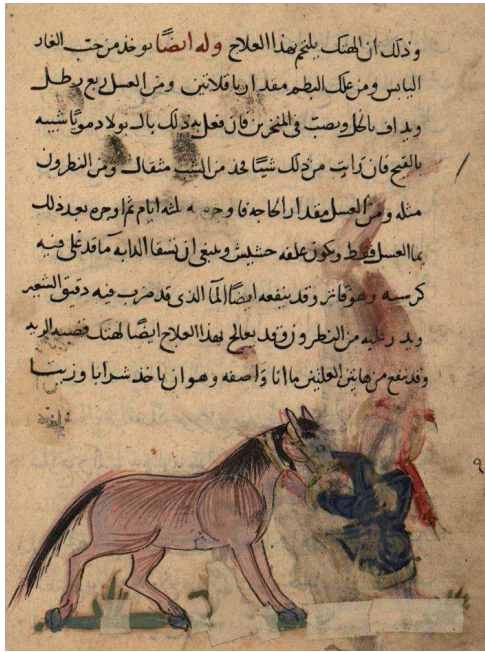 وذلك ان الهتك يلتحم بهذا العلاج وله ايضًا يوخذ من حب الغار
اليابس ومن علك البطم مقدار باقلاتين ومن العسل ربع رطل
ويداف بالخل ويصب في المنخرين فان فعل به ذلك بال بولا دمويًا شبيه
بالقيح فان رات من ذلك شيًا فخذ من الشب مثقال ومن النطرون
مثله ومن العسل مقدار الحاجه فاوجره ثلثه ايام ثم اوجره بعد ذلك
بما العسل فقط ويكون علفه حشيش وينبغي ان تسقا الدابه ما قد غلي فيه
كرسنه وهو فاتر وقد ينفعه ايضًا الما الذي قد ضرب فيه دقيق الشعير
ويذر عليه من النطرون وقد يعالج بهذا العلاج ايضًا لهتك قصبه الريه
وقد ينفع من هاتين العلتين ما انا واصفه وهو ان ياخذ شرابا وزيتا